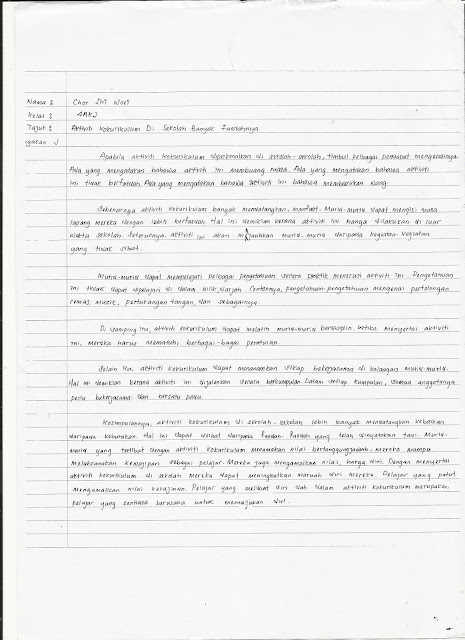 Nama : Char Zhi Woei
Kelas : 4AK2
Tajuk : Aktiviti Kokurikulum Di Sekolah Banyak Faedahnya
Apabila aktiviti kokurikulum diperkenalkan di sekolah-sekolah, timbul pelbagai pendapat mengenainya.
Ada yang mengatakan bahawa aktiviti ini membuang masa. Ada yang mengatakan bahawa aktiviti
ini tidak berfaedah. Ada yang mengatakan bahawa aktiviti ini bahawa membazirkan wang.
Sebenarnya aktiviti kokurikulum banyak mendatangkan manfaat. Murid-murid dapat mengisi masa
lapang mereka dengan lebih berfaedah. Hal ini demikian kerana aktiviti ini hanya dilakukan di luar
waktu sekolah. Seterusnya, aktiviti ini akan menjauhkan murid-murid daripada kegiatan-kegiatan
yang tidak sihat.
Murid-murid dapat mempelajari pelbagai pengetahuan secara praktik menerusi aktiviti ini. Pengetahuan
ini tidak dapat dipelajari di dalam bilik darjah. Contohnya, pengetahuan-pengetahuan mengenai pertolongan
cemas, muzik, pertukangan tangan, dan sebagainya.
Di samping itu, aktiviti kokurikulum dapat melatih murid-murid berdisiplin. Ketika menyertai aktiviti
ini, mereka harus mematuhi berbagai-bagai peraturan.
Selain itu, aktiviti kokurikulum dapat menanamkan sikap bekerjasama di kalangan murid-murid.
Hal ini demikian kerana aktiviti ini dijalankan secara berkumpulan. Dalam setiap kumpulan, semua anggotanya
perlu bekerjasama dan bersatu padu.
Kesimpulannya, aktiviti kokurikulum di sekolah-sekolah lebih banyak mendatangkan kebaikan
daripada keburukan. Hal ini dapat dilihat daripada faedah-faedah yang telah dinyatakan tadi. Murid-
murid yang terlibat dengan aktiviti kokurikulum menanamkan nilai bertanggungjawab. Mereka mampu
melaksanakan kewajipan sebagai pelajar. Mereka juga mengamalkan nilai harga diri. Dengan menyertai
aktiviti kokurikulum di sekolah mereka dapat meningkatkan maruah diri mereka. Pelajar yang patut
mengamalkan nilai kerajinan. Pelajar yang melibat diri dalam aktiviti kokurikulum merupakan
pelajar yang sentiasa berusaha untuk memajukan diri.